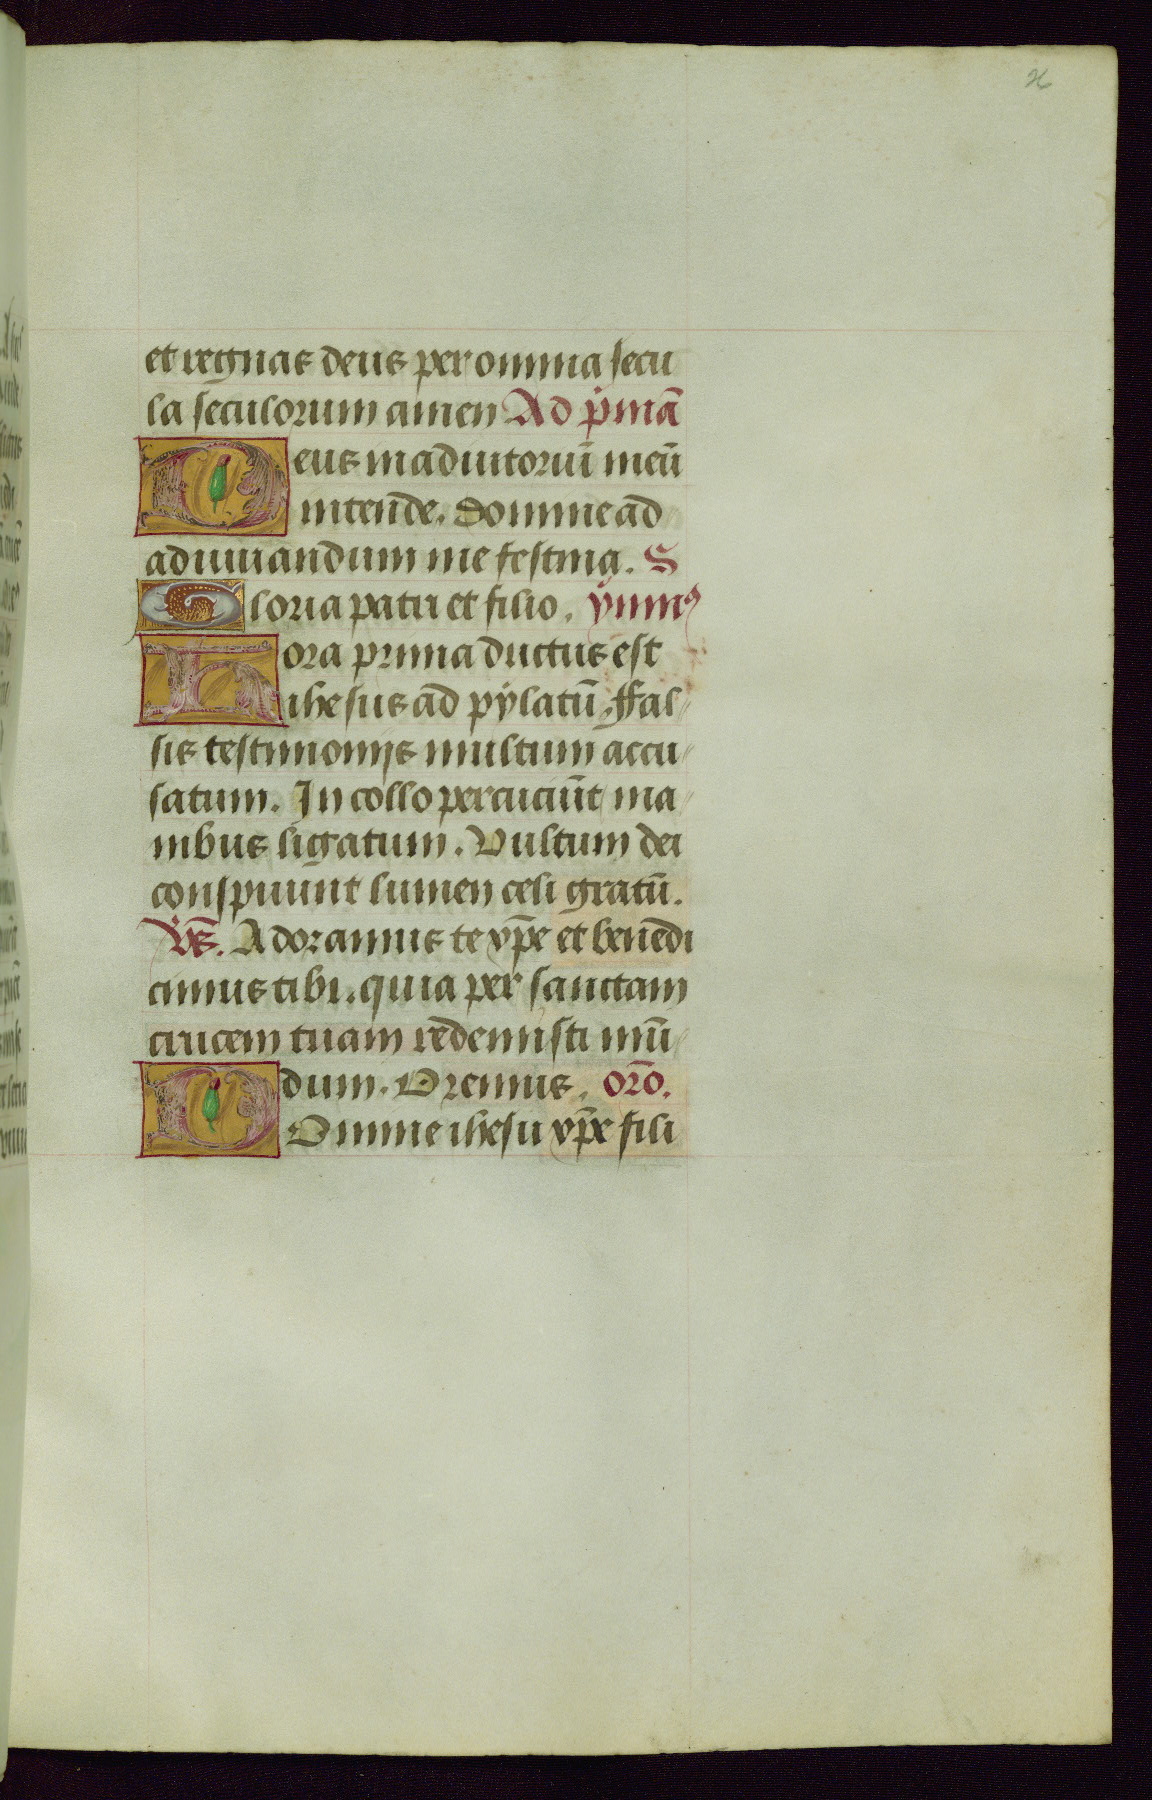 26
et regnas deus per omnia secu
la seculorum amen Ad pͥmā
Deus in adiutoriū meū
intende. Domine ad
adiuuandum me festina. S
Gloria patri et filio. ymnꝰ
Hora prima ductus est
ihesus ad pÿlatū, ffal
sis testimonijs multum accu
satum. In collo percuciūt ma
nibus ligatum. Vultum dei
conspuunt lumen celi gratū.
V̄s. Adoramus te xp̄e et benedi
cimus tibi. quia per sanctam
crucem tuam redemisti mū
dum. Oremus. or̄o.
DOmine ihesu xp̄e fili